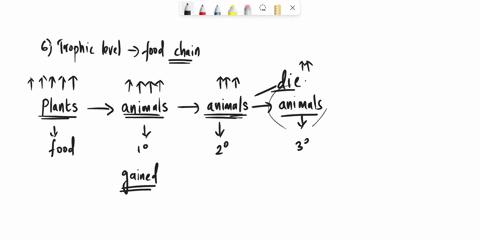 6) Trophic level → food chain
die
Plants → animals → animals → animals
food 1° 2° 3°
gained